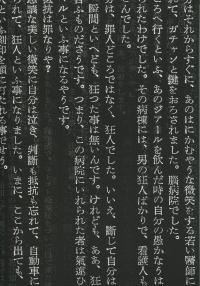 はそれからすぐに、あのはにかむやうな微笑をする若い醫師に
ガチャンと鍵をおろされました。腦病院でした。
ころへ行くといふ、あのジアールを飮んだ時の自分の愚かなうは
れたわけでした。その病棟には、男の狂人ばかりで、看護人も
んでした。
は罪人どころではなく、狂人でした。いいえ、斷じて自分は
瞬間といへども、狂つた事は無いんです。けれども、ああ、狂
ふものださうです。つまり、この病院にいれられた者は氣違ひ
ルといふ事になるやうです。
抗は罪なりや?
思議な美しい微笑に自分は泣き、判斷も抵抗も忘れて、自動車に
れて、狂人といふ事になりました。いまに、ここから出ても、
いふ刻印を額に打たれる事でせ